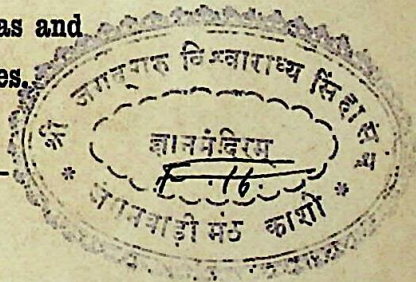 as and
es.
श्री जगद्गुरु विश्वाराध्य सिंहासन
ज्ञानमंदिरम्
जंगमवाड़ी मठ काशी